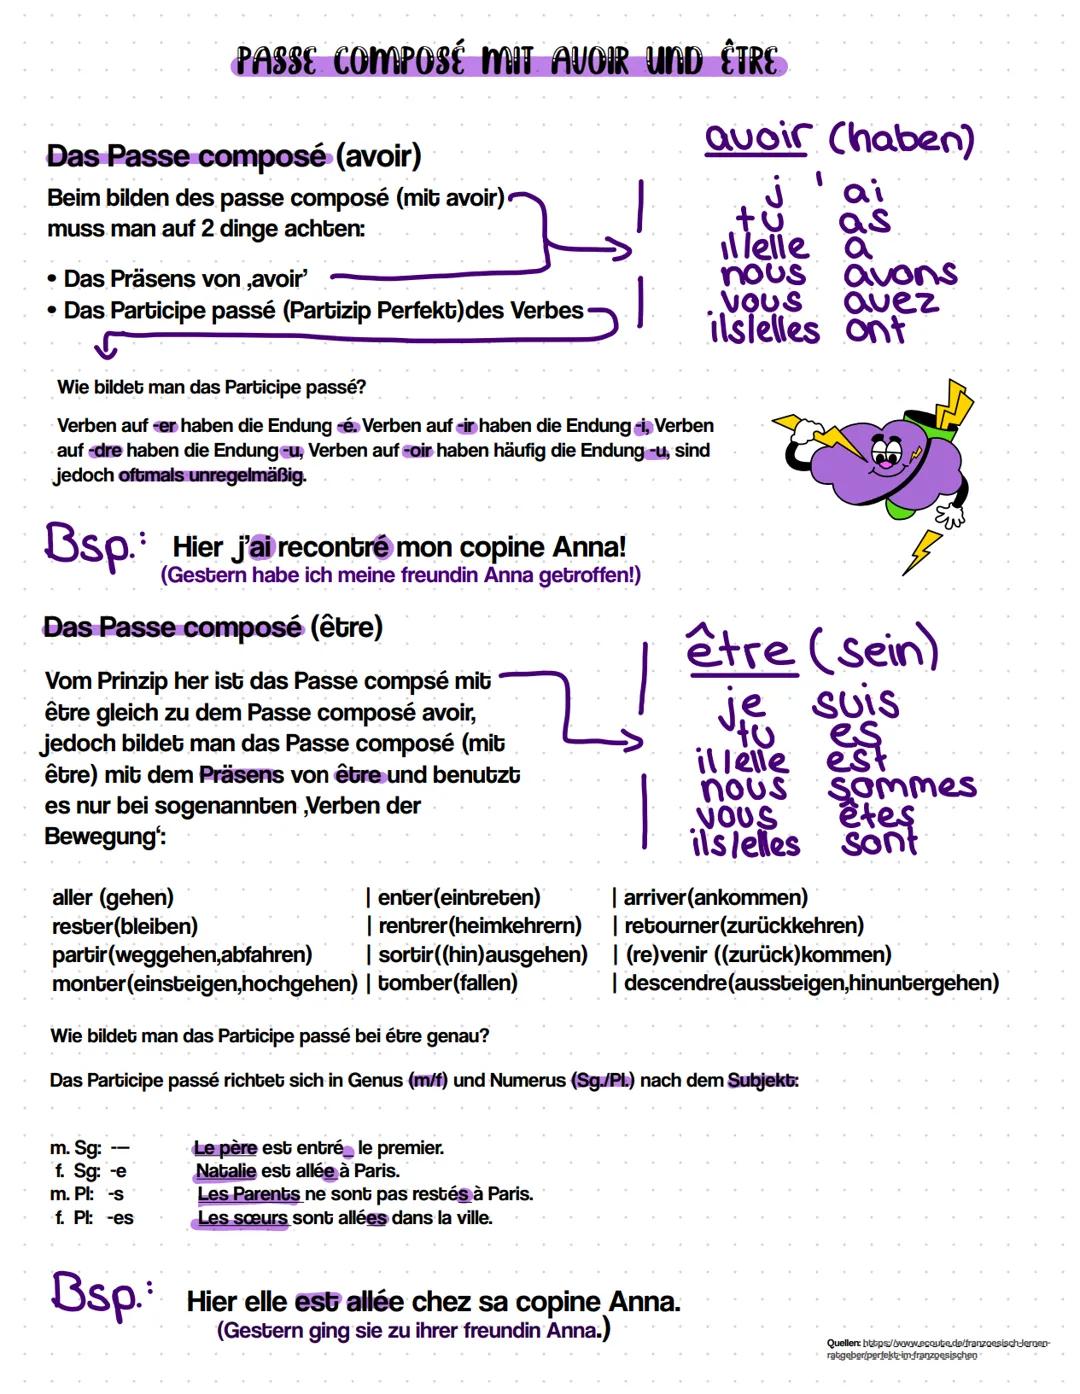 PASSE COMPOSÉ MIT AVOIR UND ÊTRE
Das Passe composé (avoir)
Beim bilden des passe composé (mit avoir)
muss man auf 2 dinge achten:
• Das Präsens von ‚avoir'
• Das Participe passé (Partizip Perfekt)des Verbes
avoir (haben)
j' ai
tu as
il/elle a
nous avons
vous avez
ils/elles ont
Wie bildet man das Participe passé?
Verben auf -er haben die Endung -é. Verben auf -ir haben die Endung -i, Verben
auf -dre haben die Endung -u, Verben auf -oir haben häufig die Endung -u, sind
jedoch oftmals unregelmäßig.
Bsp.: Hier j'ai recontré mon copine Anna!
(Gestern habe ich meine freundin Anna getroffen!)
Das Passe composé (être)
Vom Prinzip her ist das Passe compsé mit
être gleich zu dem Passe composé avoir,
jedoch bildet man das Passe composé (mit
être) mit dem Präsens von être und benutzt
es nur bei sogenannten ‚Verben der
Bewegung':
être (sein)
je suis
tu es
il/elle est
nous sommes
vous êtes
ils/elles sont
aller (gehen) | enter(eintreten) | arriver(ankommen)
rester(bleiben) | rentrer(heimkehrern) | retourner(zurückkehren)
partir(weggehen,abfahren) | sortir((hin)ausgehen) | (re)venir ((zurück)kommen)
monter(einsteigen,hochgehen) | tomber(fallen) | descendre(aussteigen,hinuntergehen)
Wie bildet man das Participe passé bei étre genau?
Das Participe passé richtet sich in Genus (m/f) und Numerus (Sg./Pl.) nach dem Subjekt:
m. Sg: -— Le père est entré_ le premier.
f. Sg: -e Natalie est allée à Paris.
m. Pl: -s Les Parents ne sont pas restés à Paris.
f. Pl: -es Les sœurs sont allées dans la ville.
Bsp.: Hier elle est allée chez sa copine Anna.
(Gestern ging sie zu ihrer freundin Anna.)
Quellen: https://www.ecoute.de/franzoesisch-lernen-
ratgeber/perfekt-im-franzoesischen